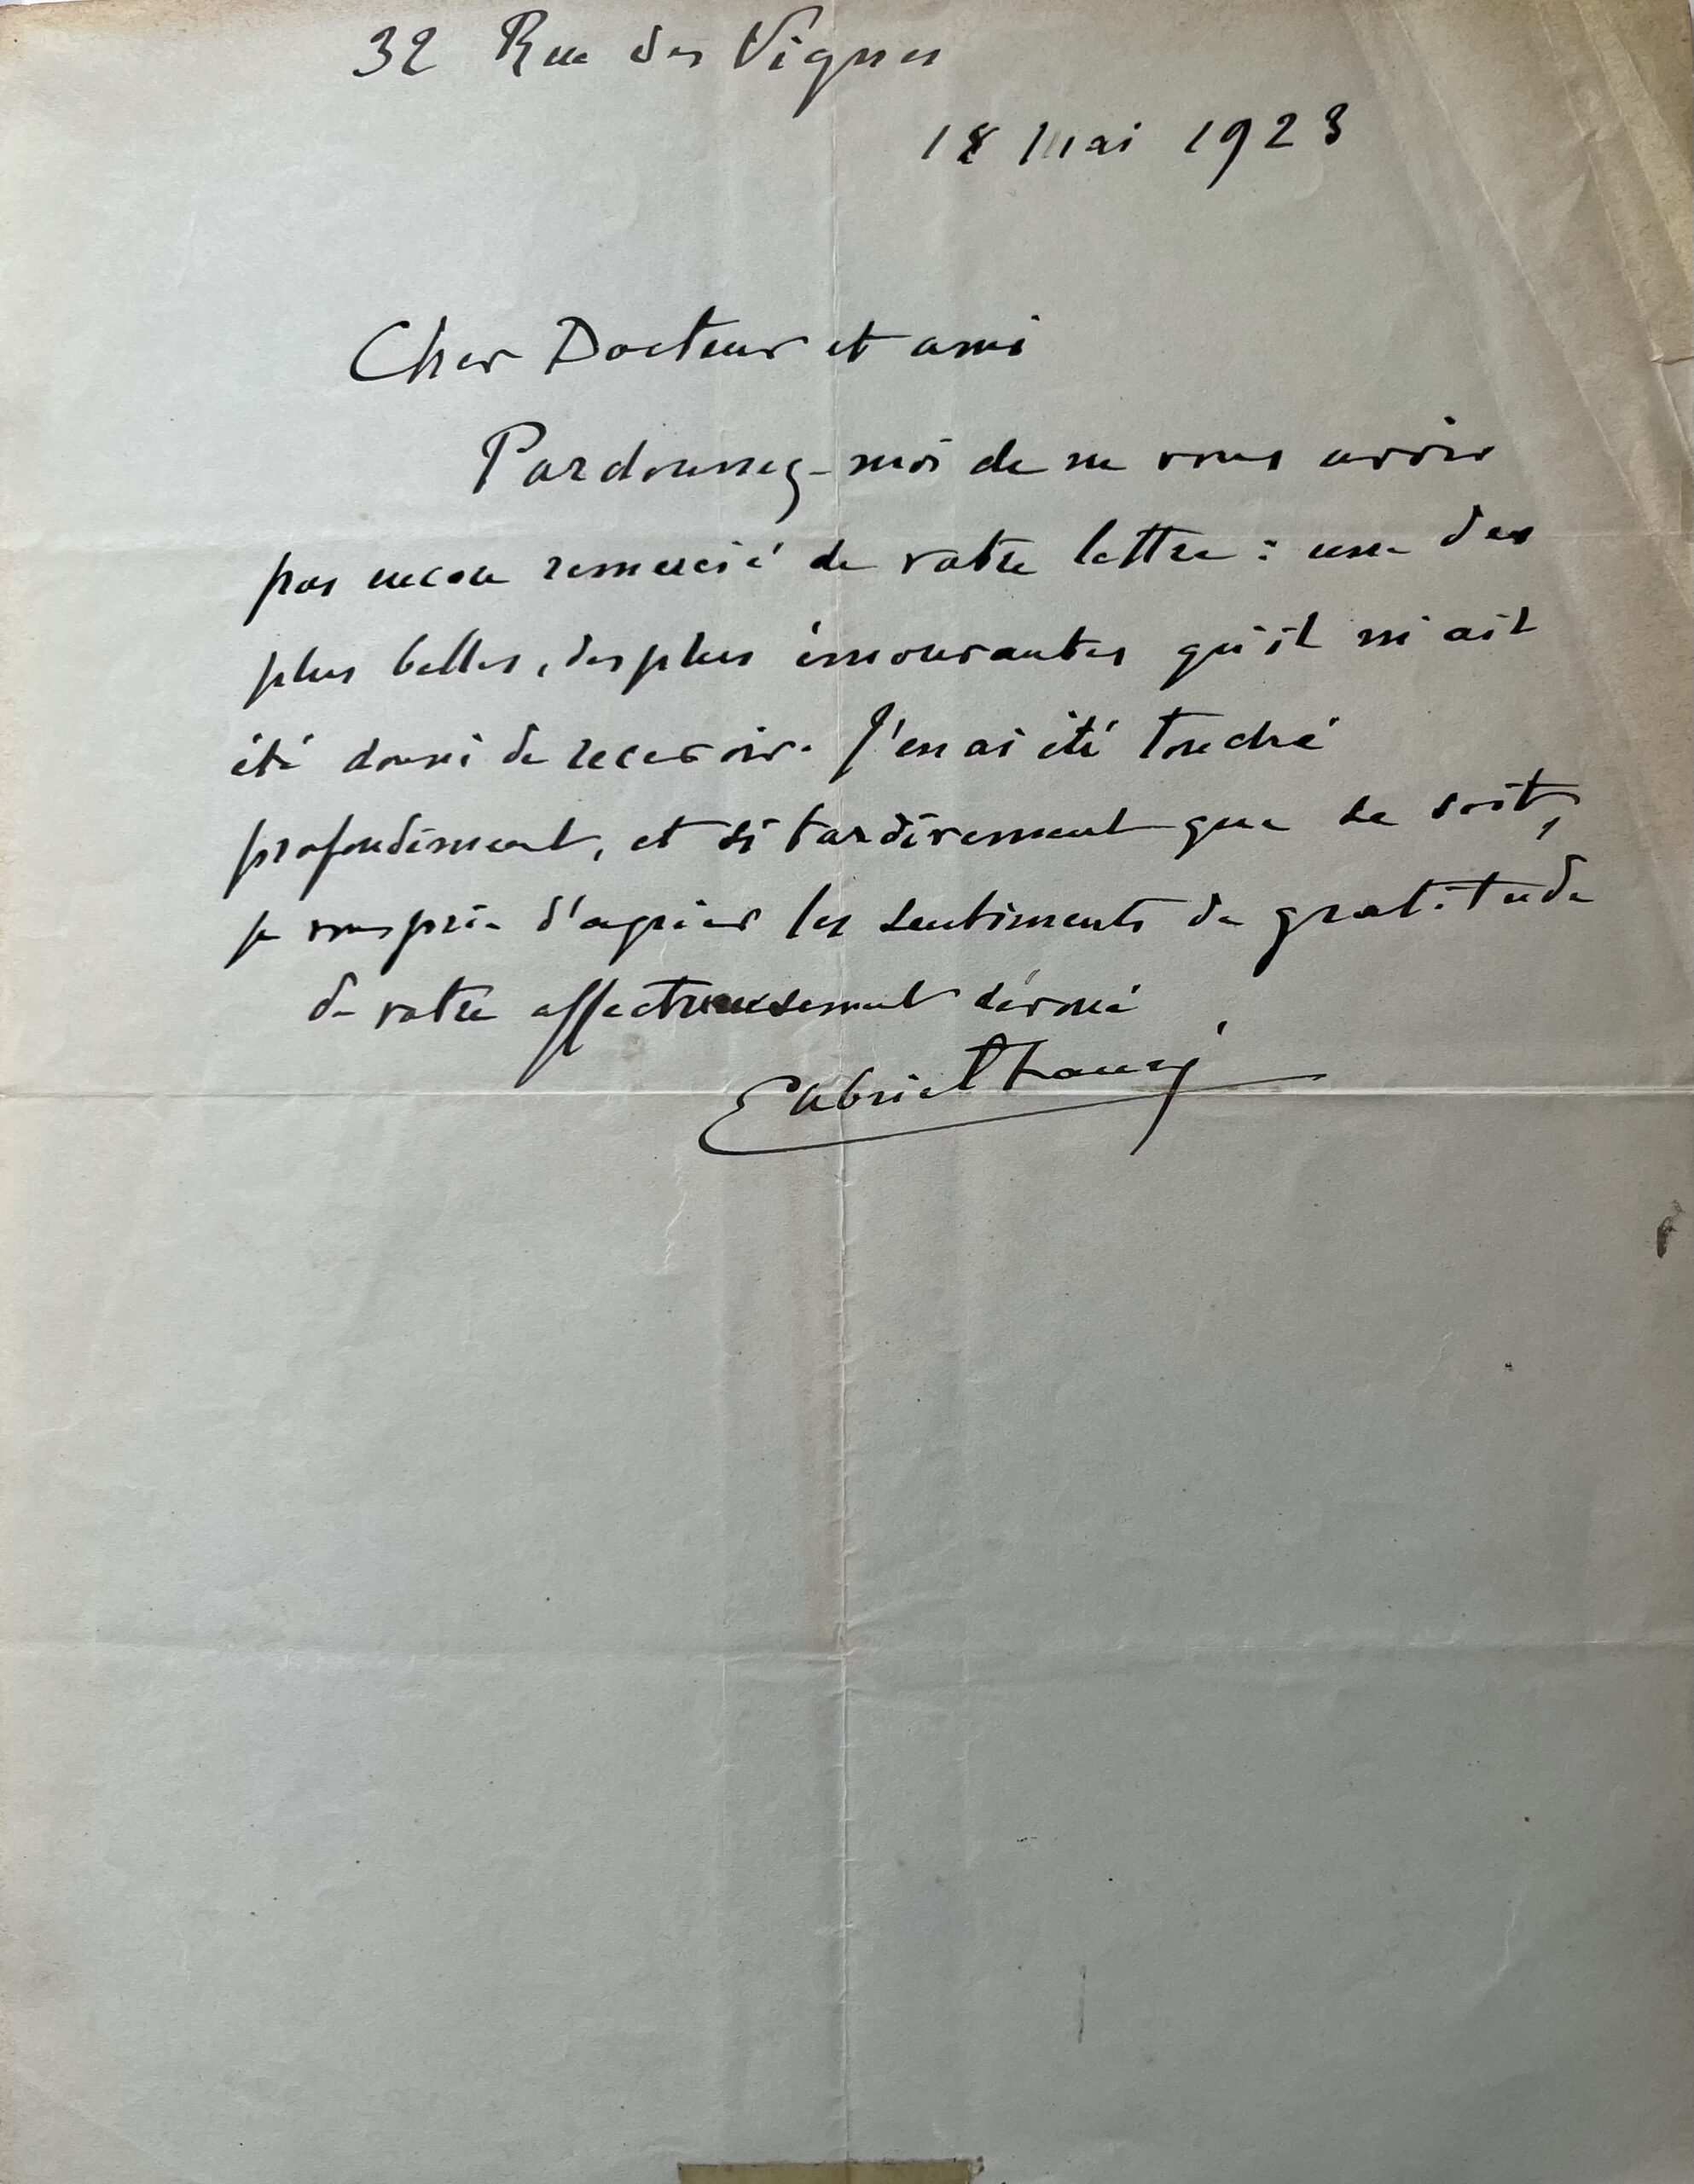 32 Rue des Vignes
18 Mai 1923
Cher Docteur et ami
Pardonnez-moi de ne vous avoir
pas encore remercié de votre lettre : une des
plus belles, des plus émouvantes qu'il m'ait
été donné de recevoir. J'en ai été touché
profondément, et si tardivement que ce soit,
je vous prie d'agréer les sentiments de gratitude
de votre affectueusement dévoué
Gabriel Fauré